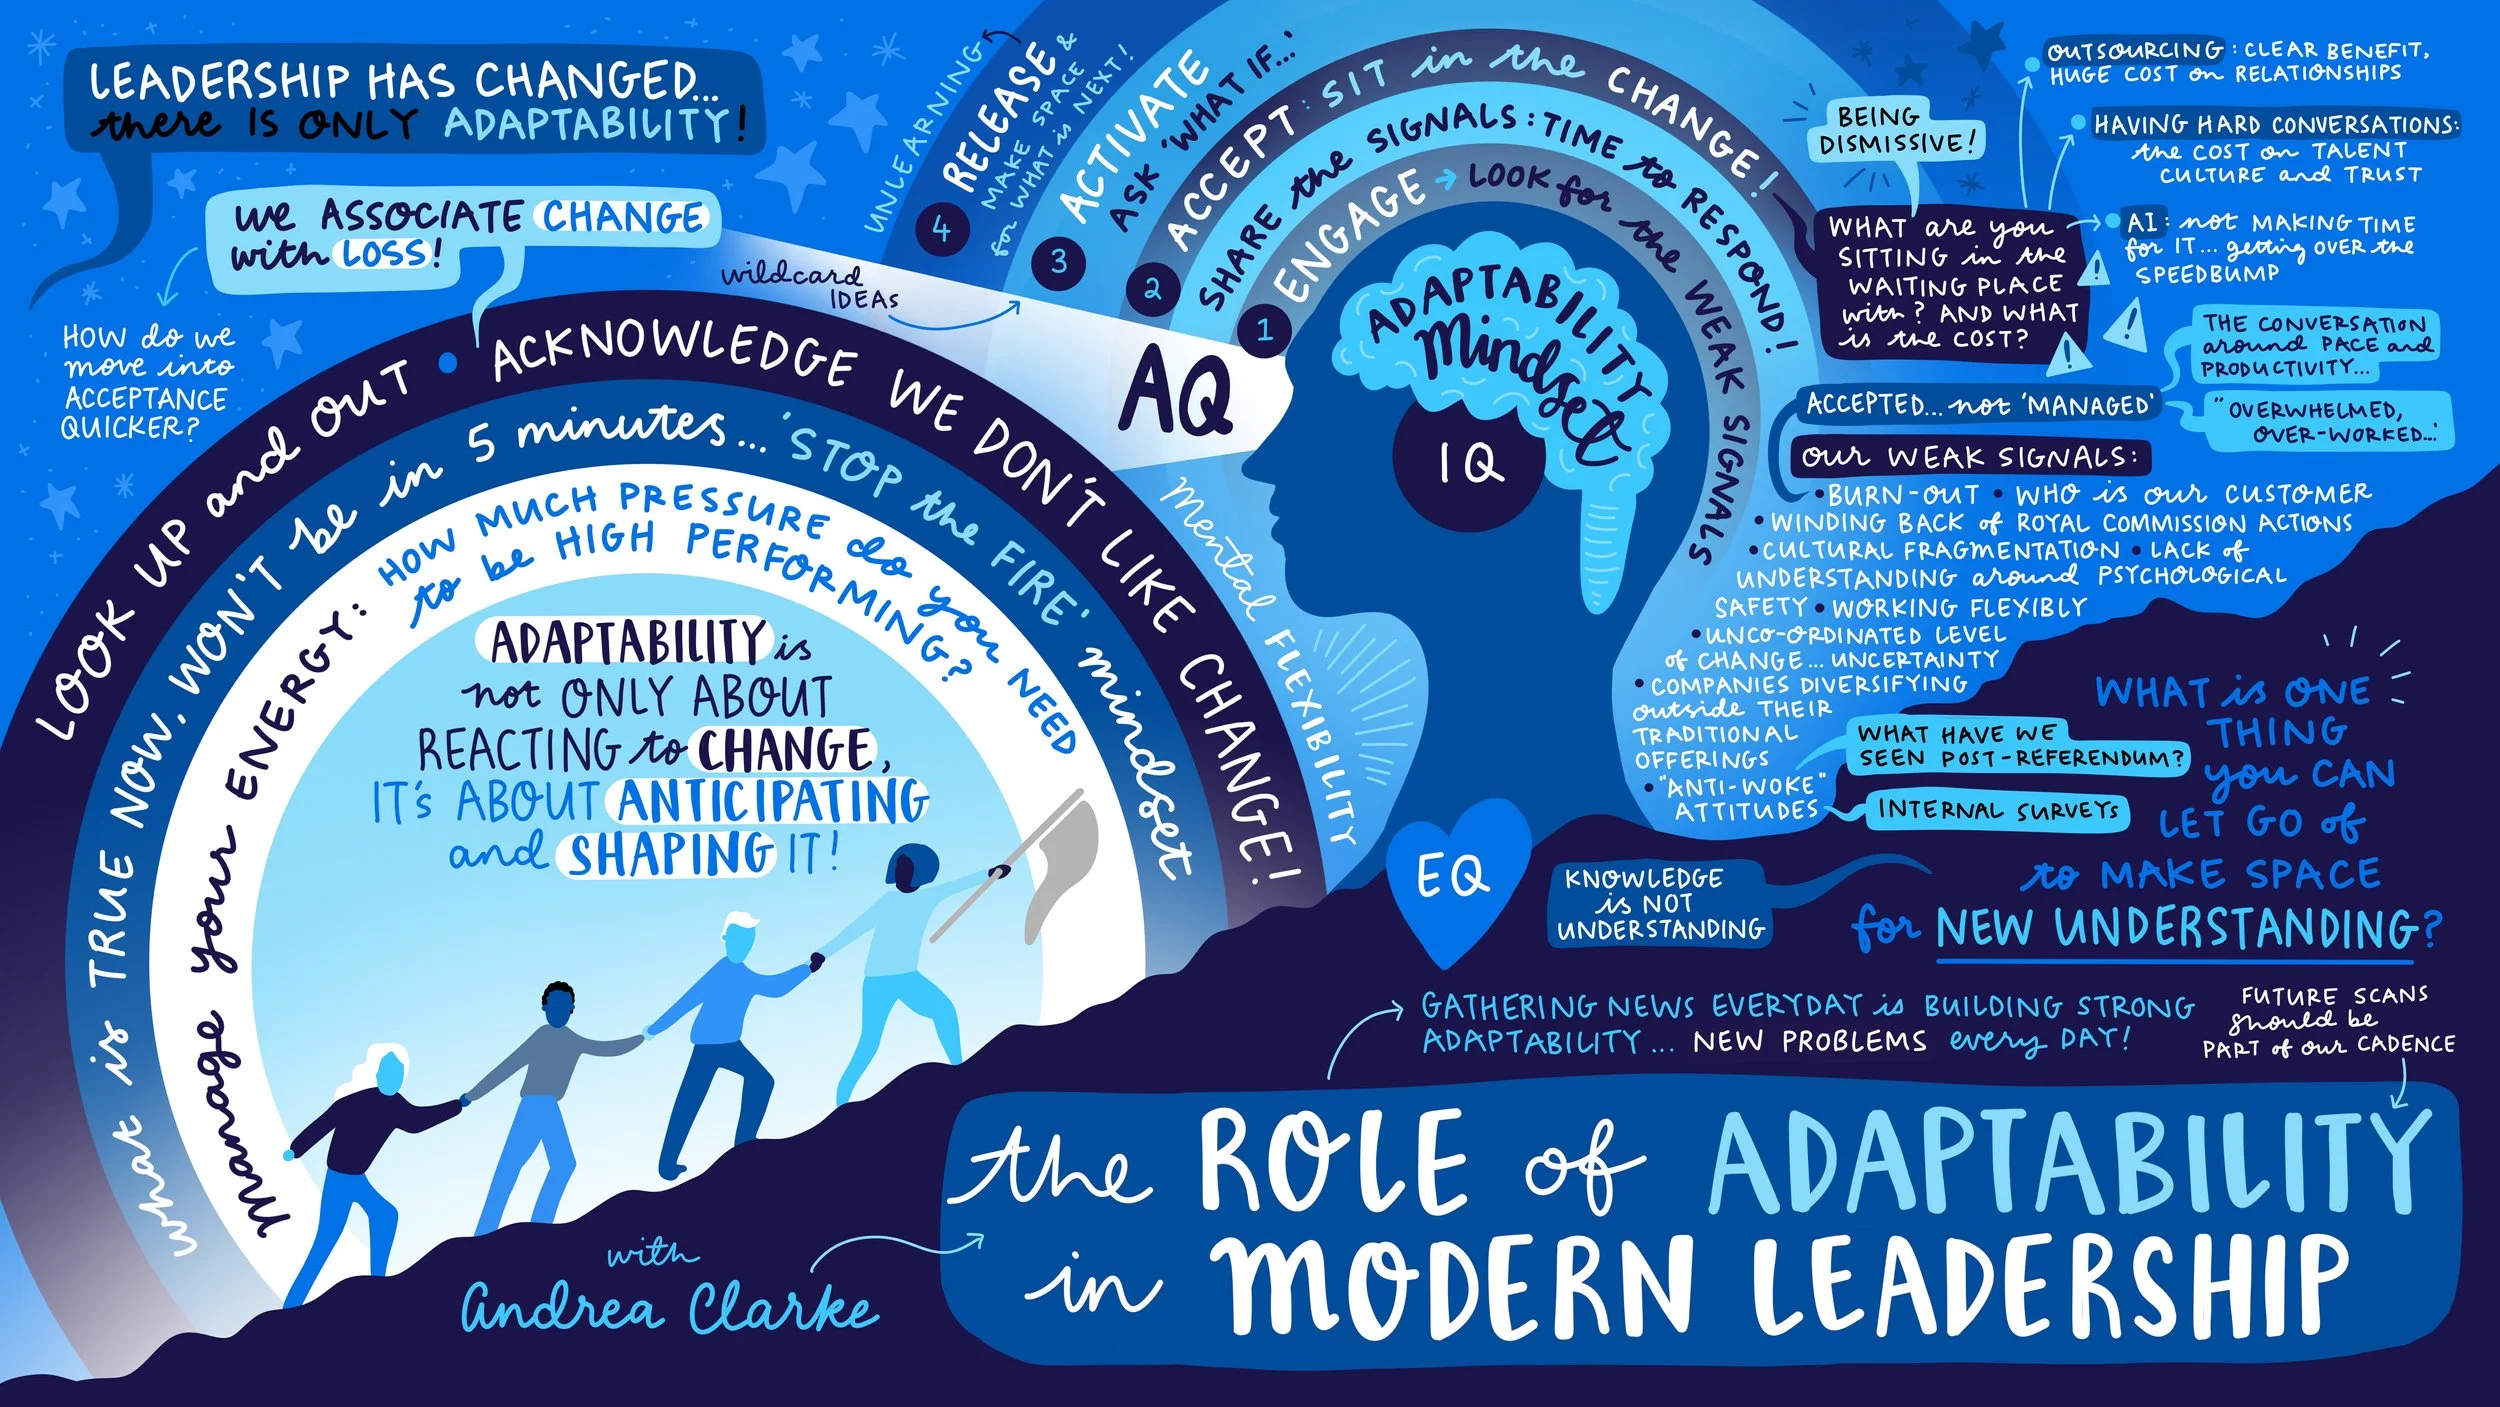 LEADERSHIP HAS CHANGED...
there IS ONLY ADAPTABILITY!
we ASSOCIATE CHANGE
with LOSS!
HOW do we
move into
ACCEPTANCE
QUICKER?
LOOK UP and OUT • ACKNOWLEDGE WE DON'T LIKE CHANGE!
what is TRUE NOW, WON'T be in 5 minutes... 'STOP the FIRE' mindset
Manage your ENERGY: HOW MUCH PRESSURE do you NEED
to be HIGH PERFORMING?
ADAPTABILITY is
not ONLY ABOUT
REACTING to CHANGE,
IT'S ABOUT ANTICIPATING
and SHAPING IT!
wildcard
IDEAS
AQ
UNLEARNING
4 RELEASE
MAKE SPACE &
for WHAT is NEXT!
3 ACTIVATE
ASK 'WHAT IF...'
2 ACCEPT: SIT in the CHANGE!
SHARE the SIGNALS: TIME to RESPOND!
1 ENGAGE → LOOK for the WEAK SIGNALS
ADAPTABILITY
Mindset
IQ
Mental FLEXIBILITY
EQ
BEING
DISMISSIVE!
WHAT are you
SITTING in the
WAITING PLACE
with? AND WHAT
is the COST?
OUTSOURCING: CLEAR BENEFIT,
HUGE COST on RELATIONSHIPS
HAVING HARD CONVERSATIONS:
the COST on TALENT
CULTURE and TRUST
AI: not MAKING TIME
for IT... getting OVER the
SPEEDBUMP
!
!
!
THE CONVERSATION
around PACE and
PRODUCTIVITY...
ACCEPTED... not 'MANAGED'
"OVERWHELMED,
OVER-WORKED...'
OUR WEAK SIGNALS:
• BURN-OUT • WHO is our CUSTOMER
• WINDING BACK of ROYAL COMMISSION ACTIONS
• CULTURAL FRAGMENTATION • LACK of
UNDERSTANDING around PSYCHOLOGICAL
SAFETY • WORKING FLEXIBLY
• UNCO-ORDINATED LEVEL
of CHANGE... UNCERTAINTY
• COMPANIES DIVERSIFYING
outside THEIR
TRADITIONAL
OFFERINGS
• "ANTI-WOKE"
ATTITUDES
WHAT HAVE WE
SEEN POST-REFERENDUM?
INTERNAL SURVEYS
KNOWLEDGE
is NOT
UNDERSTANDING
WHAT is ONE
THING
you CAN
LET GO of
to MAKE SPACE
for NEW UNDERSTANDING?
GATHERING NEWS EVERYDAY is BUILDING STRONG
ADAPTABILITY... NEW PROBLEMS every DAY!
FUTURE SCANS
should be
PART of our CADENCE
the ROLE of ADAPTABILITY
in MODERN LEADERSHIP
with
Andrea Clarke